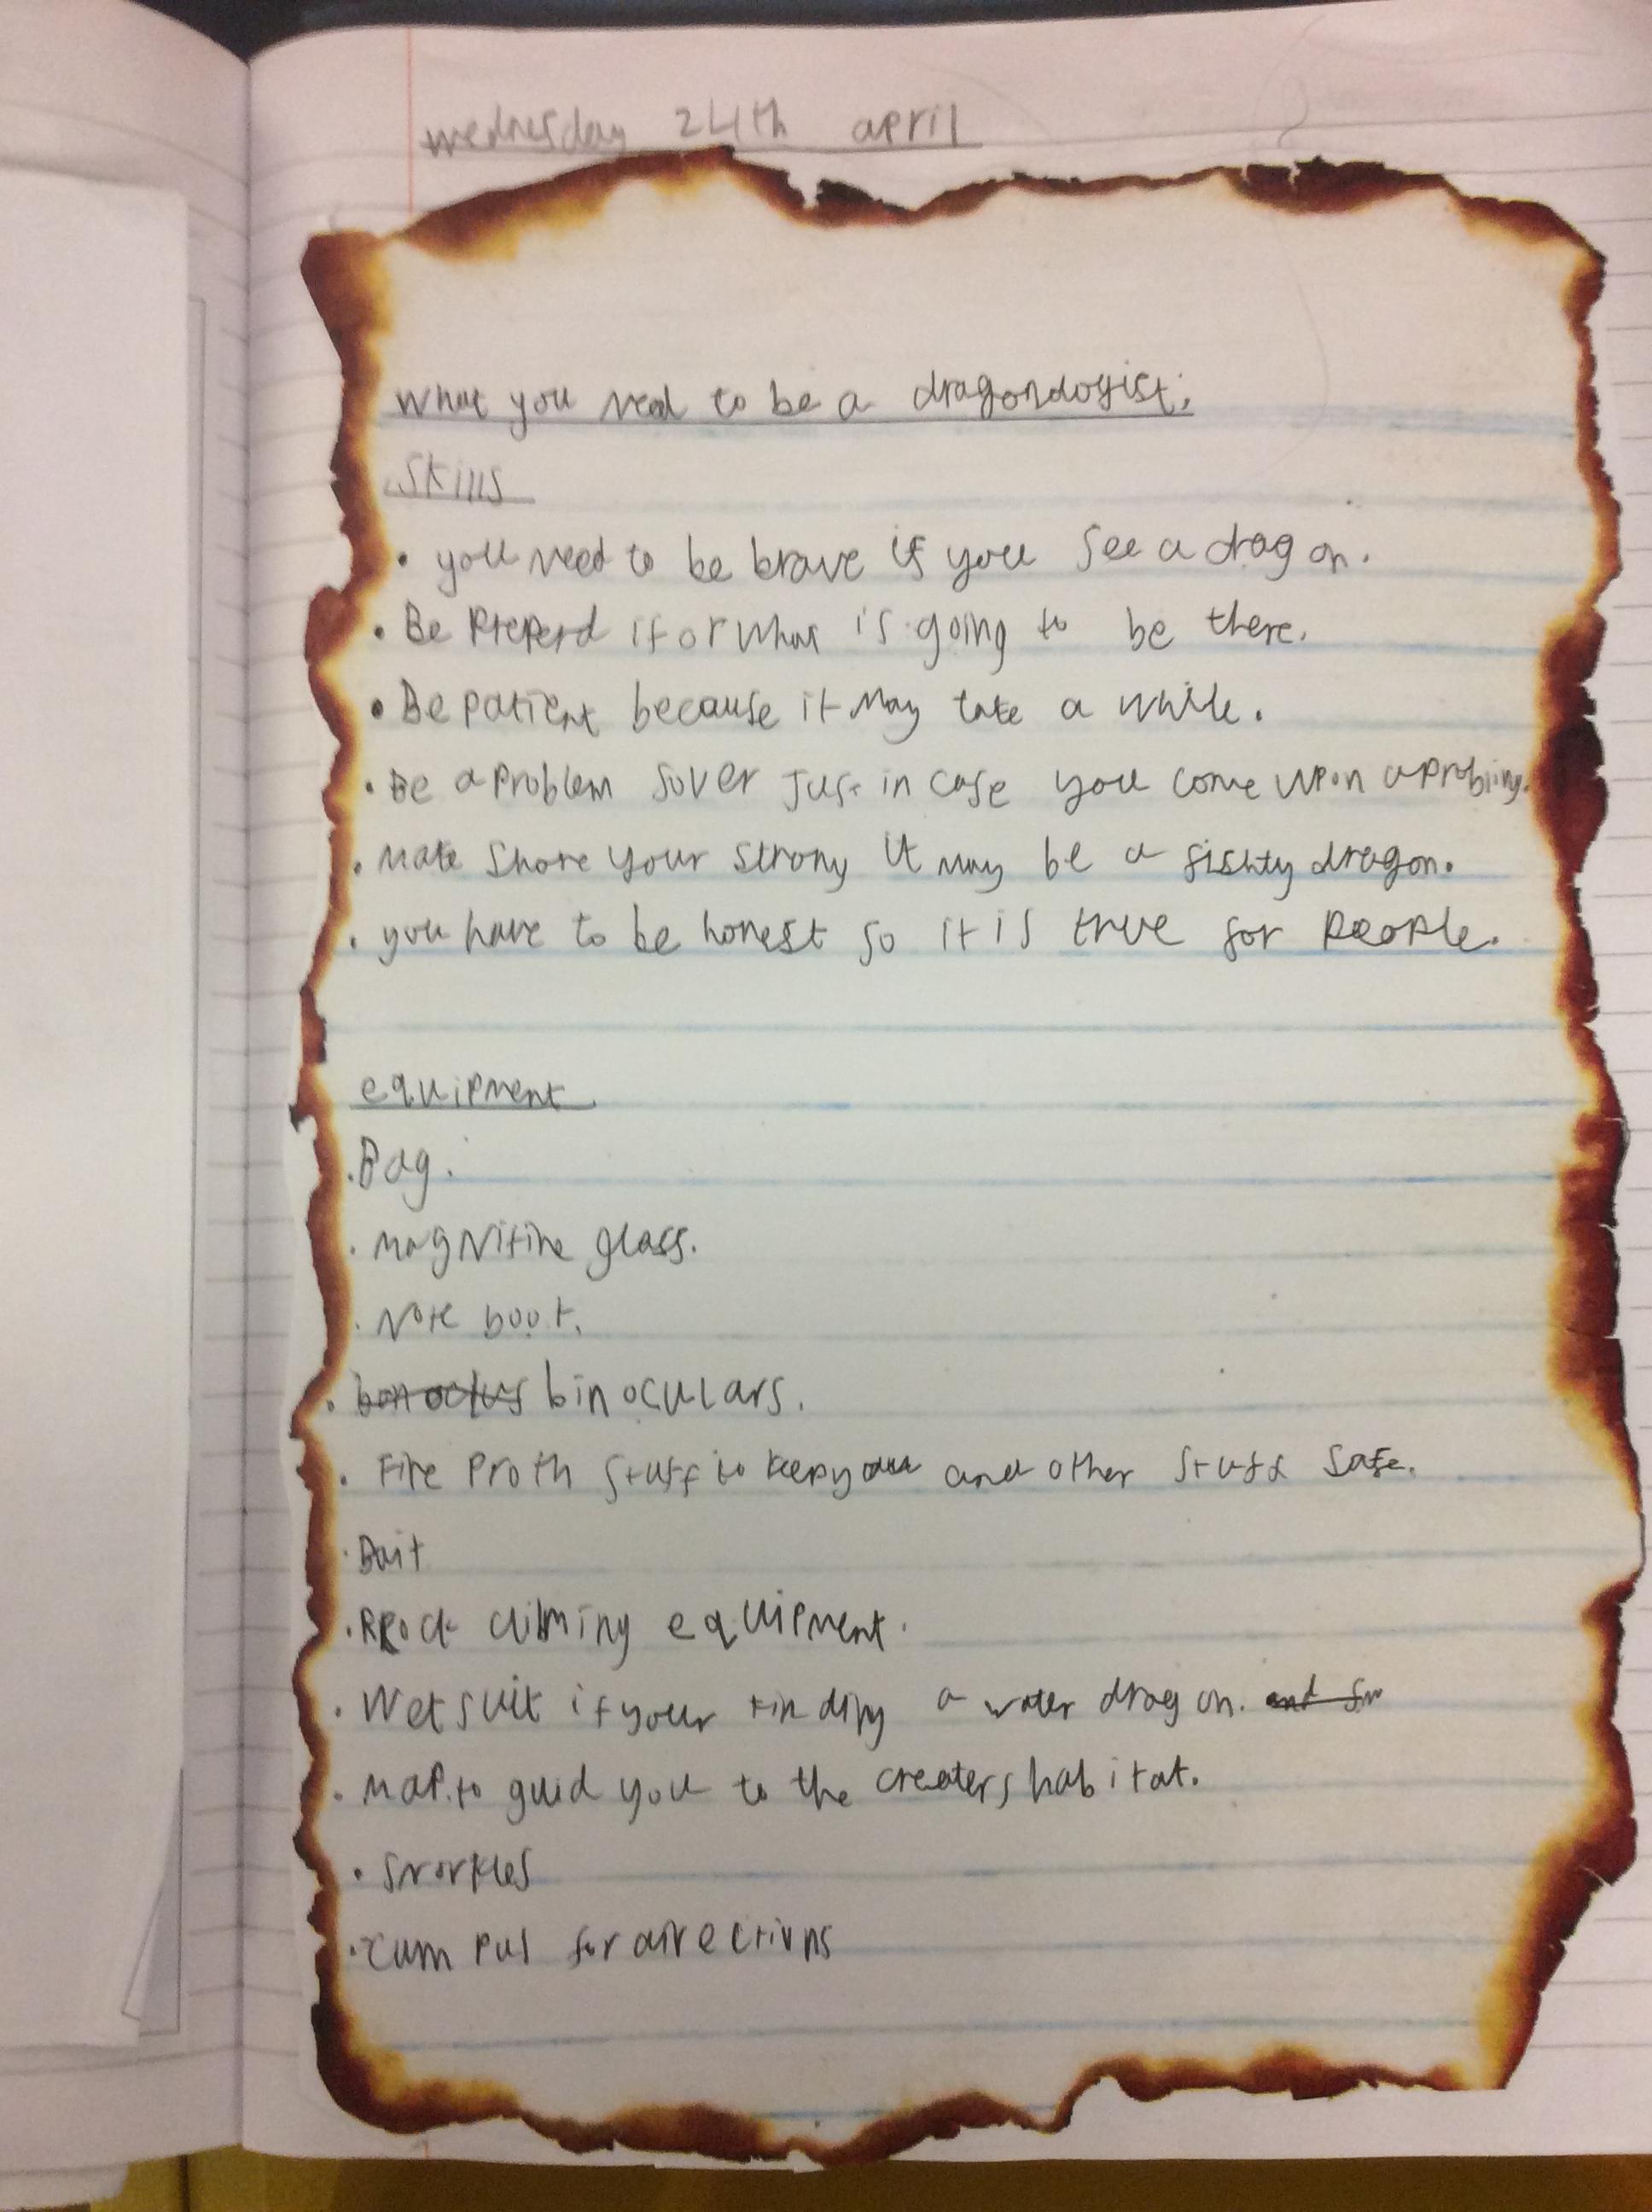 wednesday 24th april
What you need to be a dragondogist;
Skills
• you need to be brave if you see a dragon.
• Be Preperd if or what is going to be there.
• Be patient because it may take a while.
• Be a problem sover just in case you come upon a
• make shore your strong it may be a fishty dragon.
• you have to be honest so it is true for people.
equipment
• Bag.
• magnifine glass.
• Note book.
• bonoclus binoculars.
• Fire Proth stuff to keep you and other stuff safe.
• Bait
• Rock climing equipment.
• Wetsuit if your finding a water dragon. and
• map. to guid you to the creaters habitat.
• snorkles
• cum pus for directions